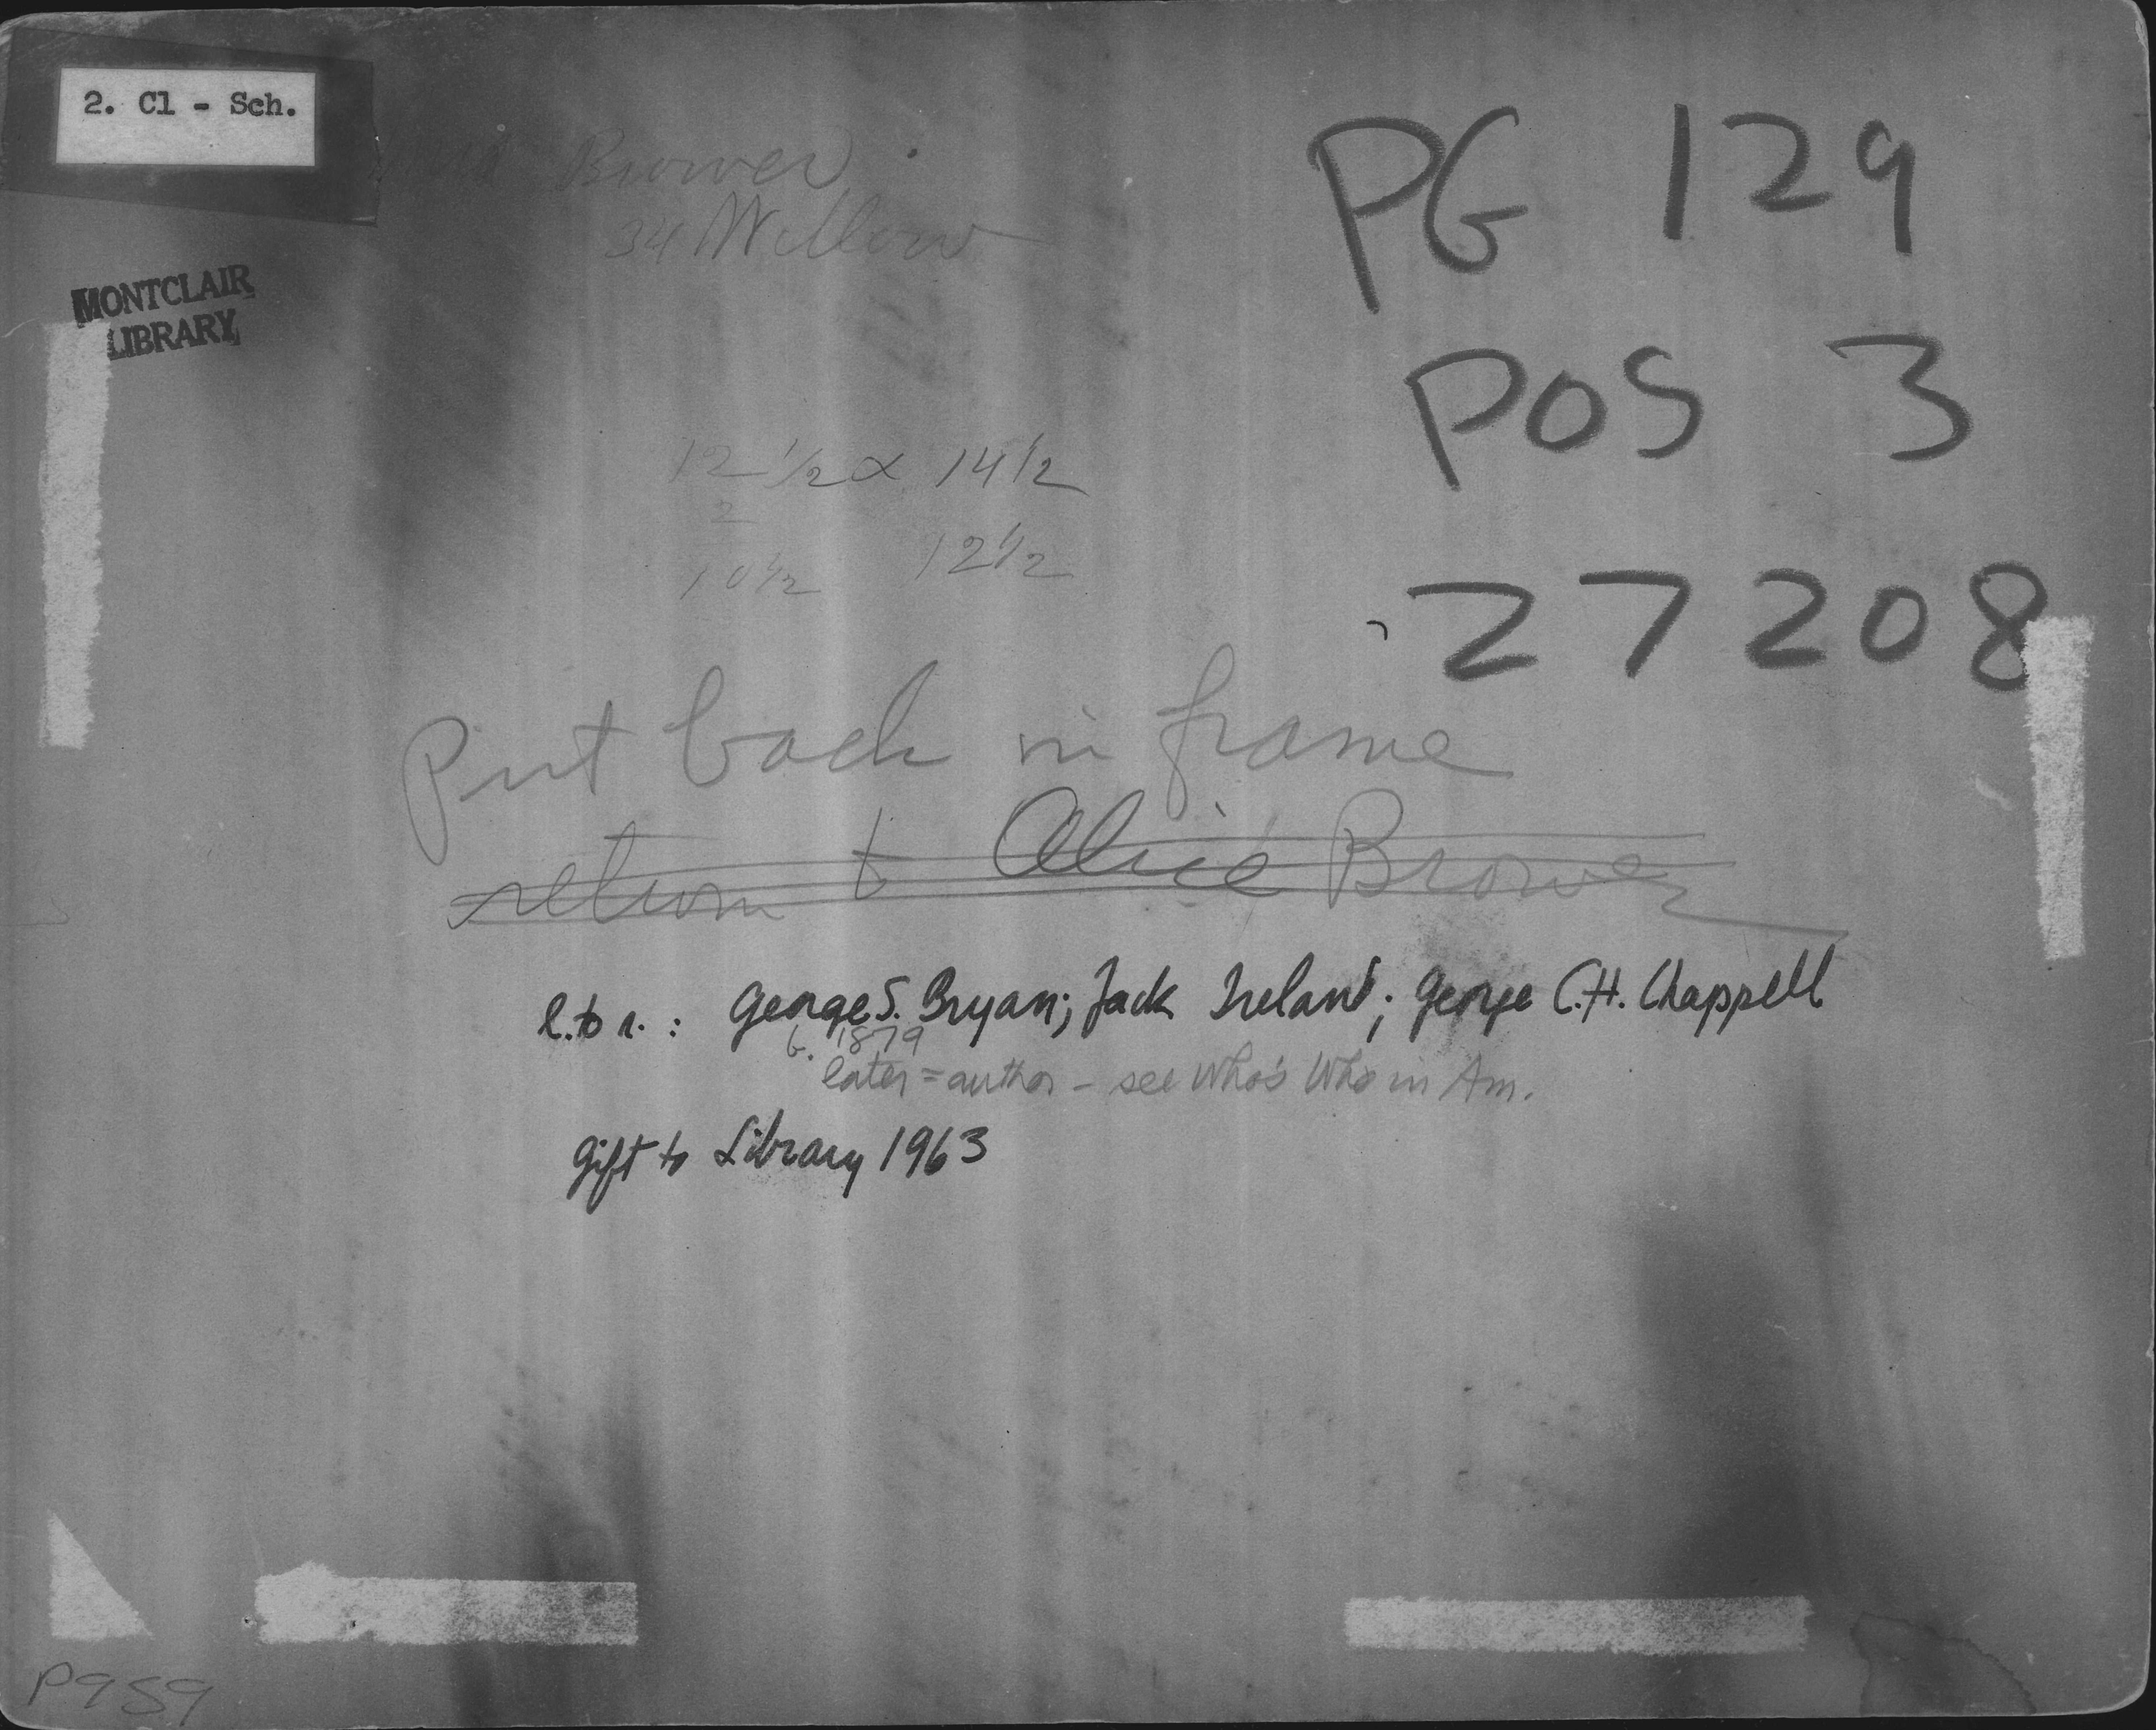 2. Cl - Sch.
Brower
34 Willow
MONTCLAIR
LIBRARY
PG 129
POS 3
27208
12 1/2 x 14 1/2
2
10 1/2 12 1/2
Put back in frame
return to Alice Brower
l. to r. : George S. Bryan; Jack Ireland; George C.H. Chappell
b. 1879
later = author - see Who's Who in Am.
gift to Library 1963
P959